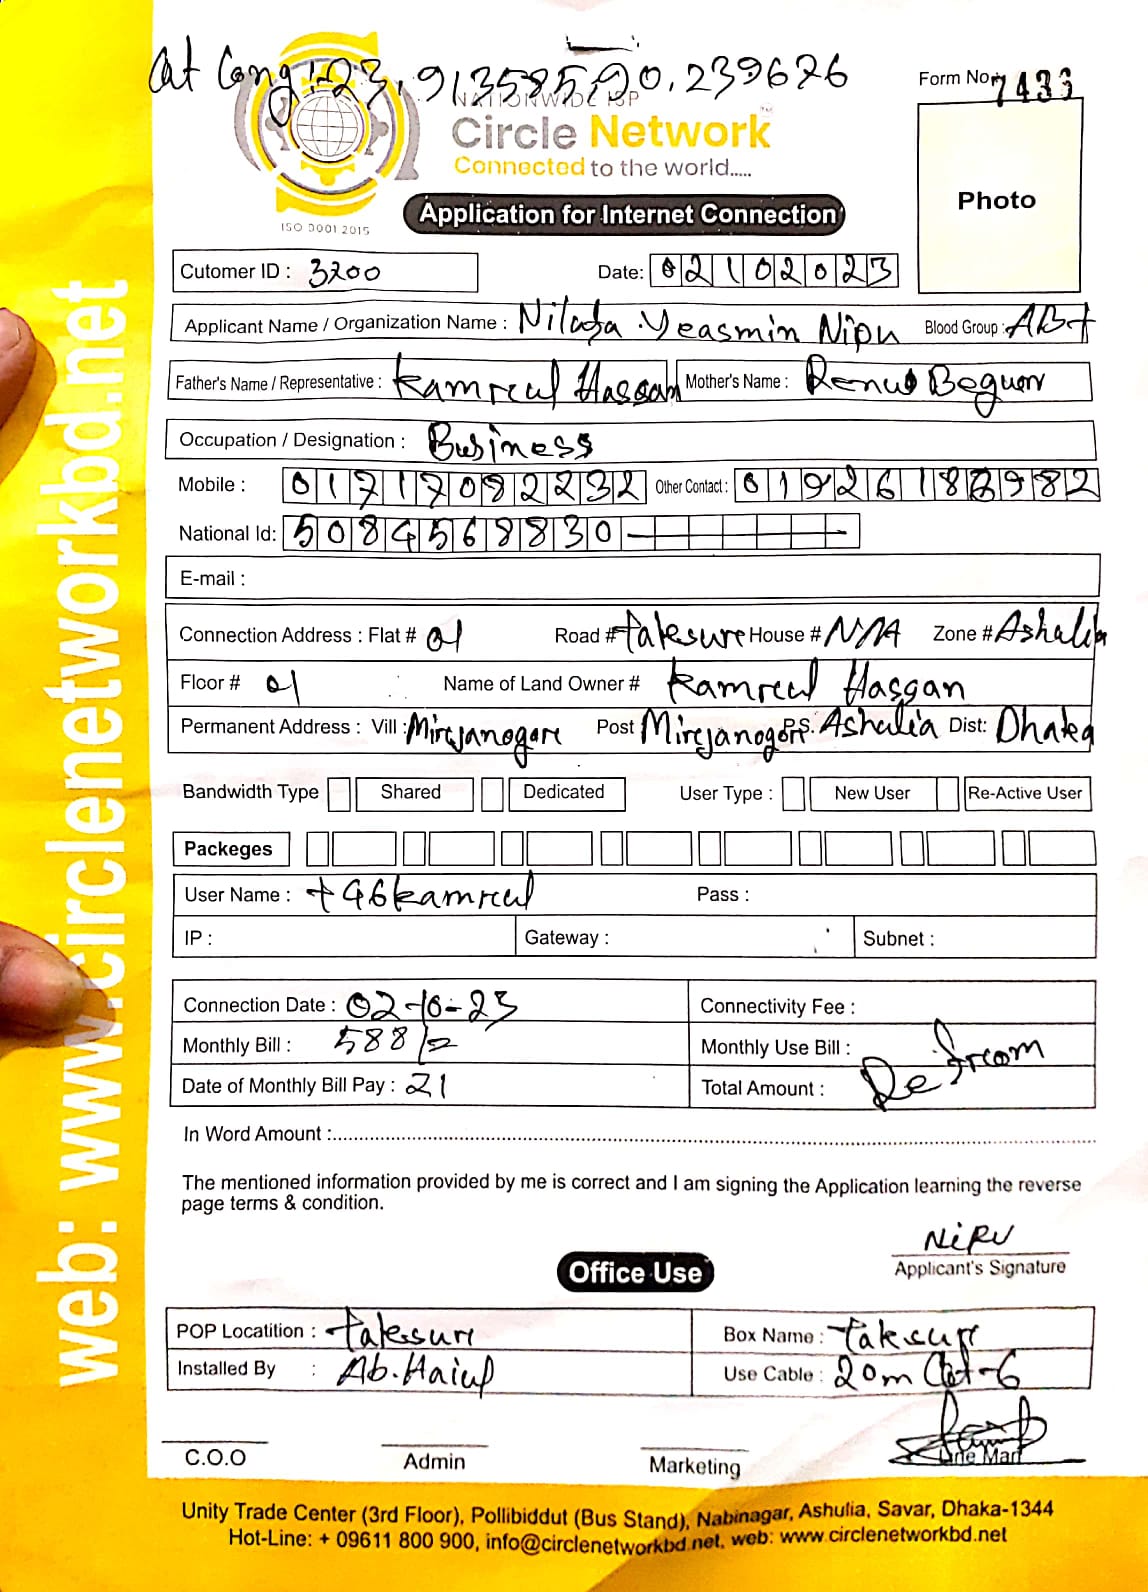 at Long: 23.913585, 90.239676
Form No. 7433
NATIONWIDE ISP
Circle Network
Connected to the world.....
ISO 9001 2015
Photo
Application for Internet Connection
Cutomer ID : 3200 Date: 02102023
Applicant Name / Organization Name : Yeasmin Nipu Blood Group : AB+
Father's Name / Representative : Kamreul Hassan Mother's Name : Renu Begum
Occupation / Designation : Business
Mobile : 01717092232 Other Contact :
National Id: 5084568830
E-mail :
Connection Address : Flat # 01 Road # taksure House # N/A Zone # Ashulia
Floor # 01 Name of Land Owner # Kamreul Hassan
Permanent Address : Vill : Mirejanogore Post Mirejanogore P.S. Ashulia Dist: Dhaka
Bandwidth Type Shared Dedicated User Type : New User Re-Active User
Packeges
User Name : t46kamreul Pass :
IP : Gateway : Subnet :
Connection Date : 02-10-23 Connectivity Fee :
Monthly Bill : 588/= Monthly Use Bill :
Date of Monthly Bill Pay : 21 Total Amount :
In Word Amount :
The mentioned information provided by me is correct and I am signing the Application learning the reverse
page terms & condition.
NIPU
Applicant's Signature
Office Use
POP Locatition : taksure Box Name : taksure
Installed By : Ab. Use Cable : 20m Cat-6
C.O.O Admin Marketing Line Man
Unity Trade Center (3rd Floor), Pollibiddut (Bus Stand), Nabinagar, Ashulia, Savar, Dhaka-1344
Hot-Line: + 09611 800 900, info@circlenetworkbd.net, web: www.circlenetworkbd.net
web: www.circlenetworkbd.net